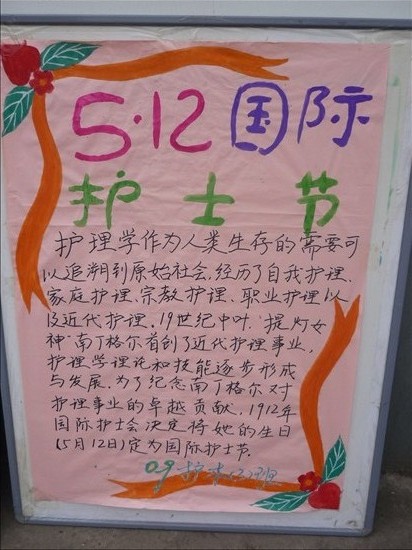 5·12国际
护士节
护理学作为人类生存的需要可
以追溯到原始社会.经历了自我护理、
家庭护理、宗教护理、职业护理以
及近代护理.19世纪中叶.提灯女
神"南丁格尔首创了近代护理事业,
护理学理论和技能逐步形成
与发展.为了纪念南丁格尔对
护理事业的卓越贡献.1912年
国际护士会决定将她的生日
(5月12日)定为国际护士节.
09护本
班